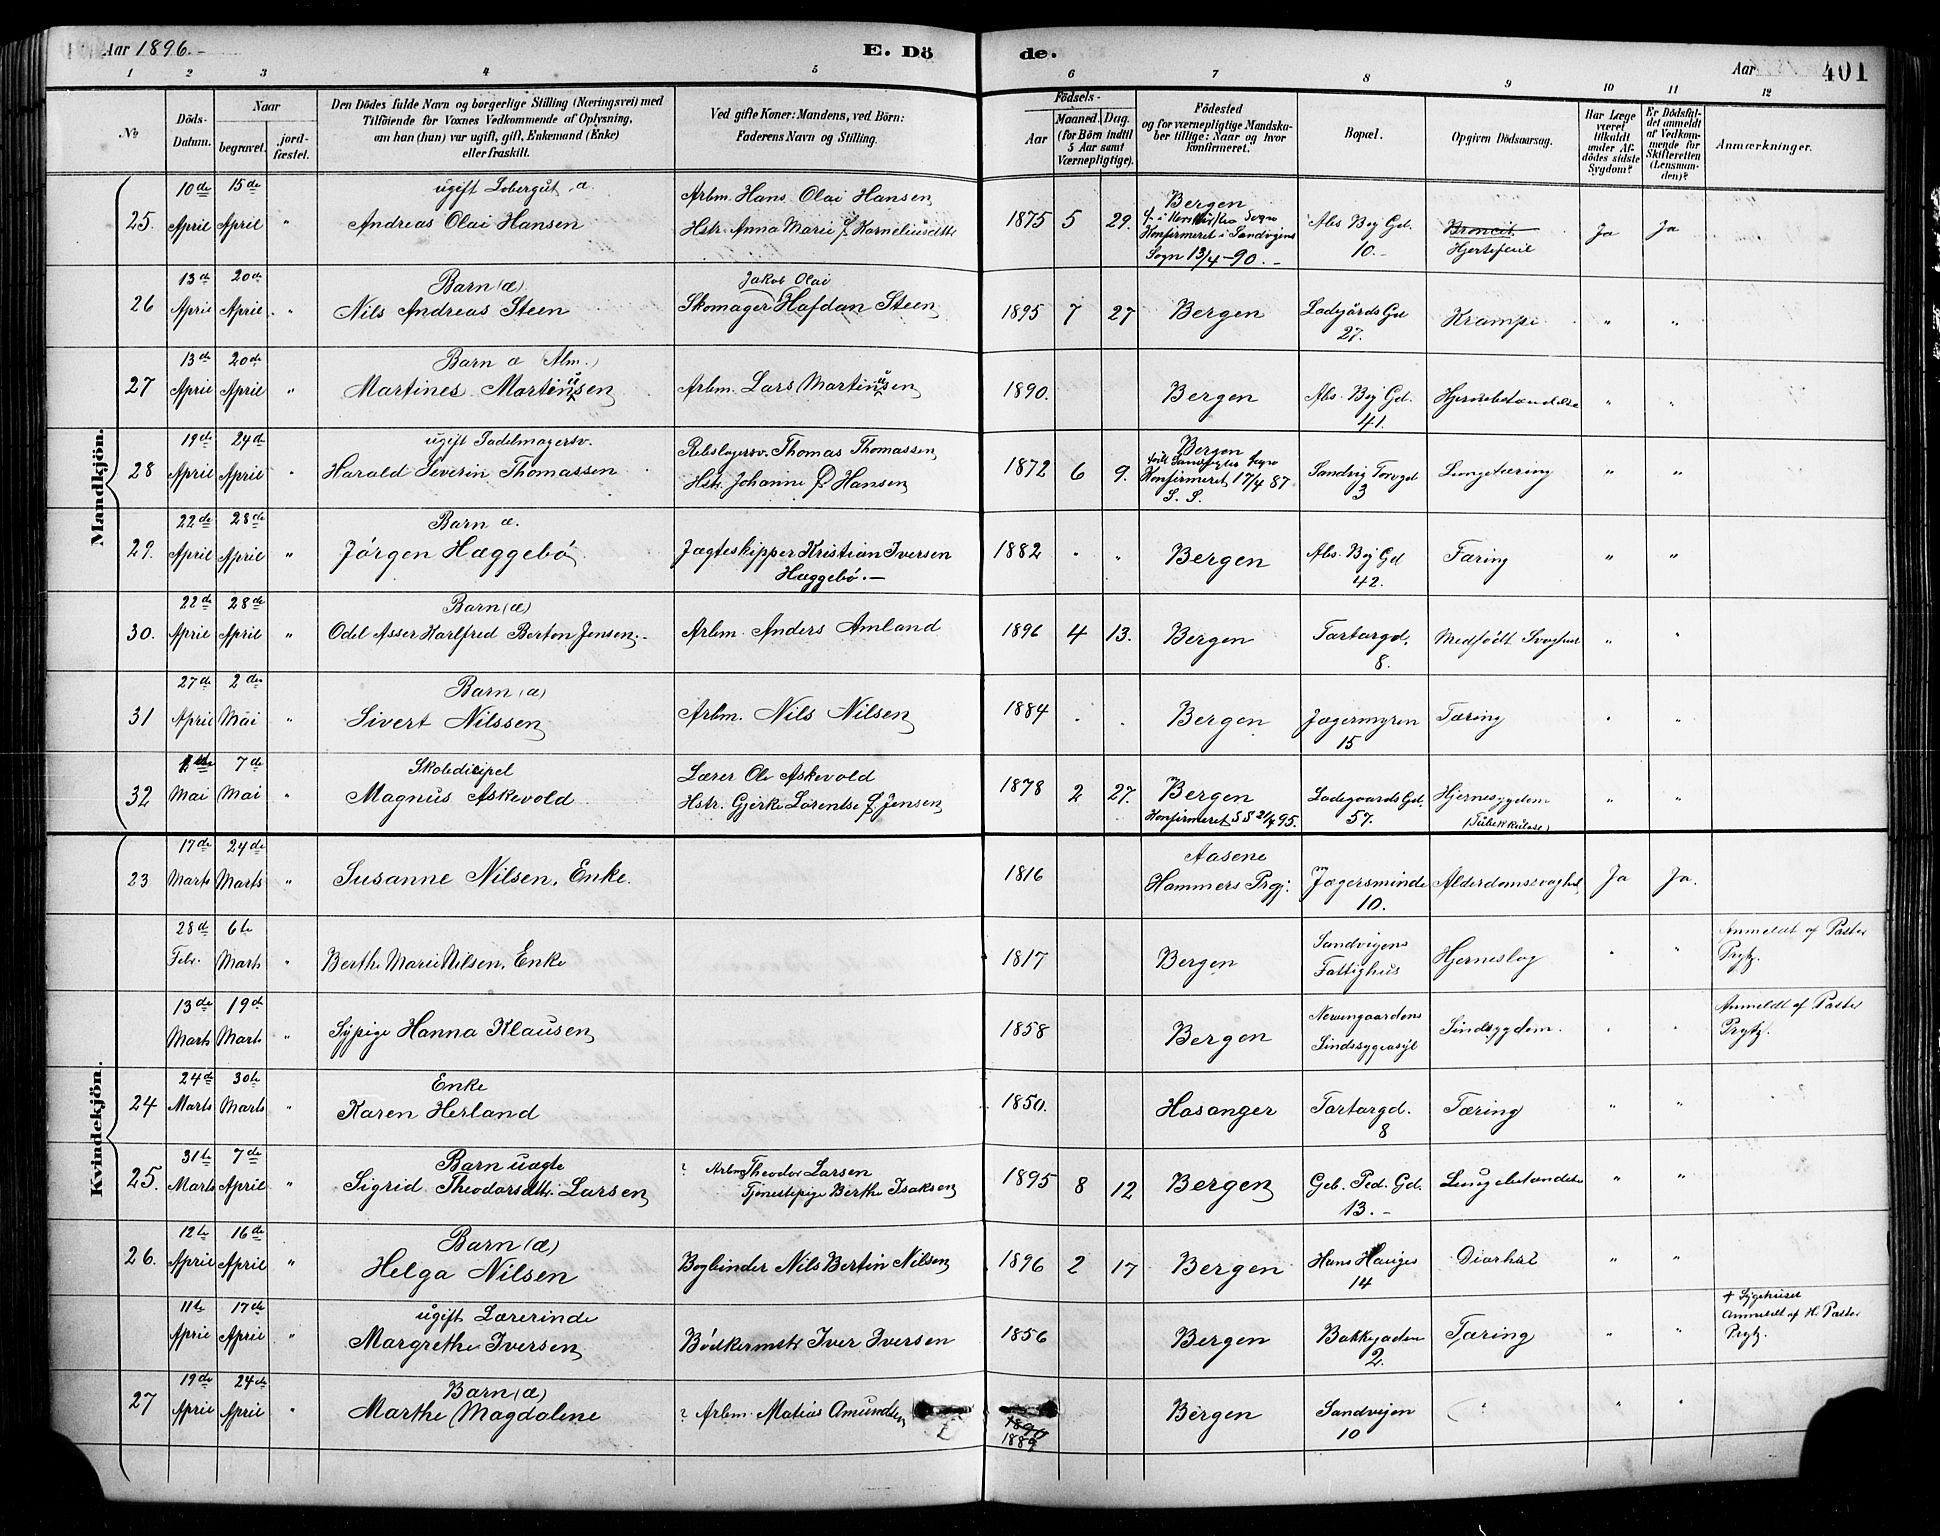 Aar 1896.- E. Dö de. Aar 401
1 2 3 4 5 6 7 8 9 10 11 12
No
Döds-Datum.
Naar
begravet.
jord-fæstet.
Den Dödes fulde Navn og borgerlige Stilling (Næringsvei) med
Tilföiende for Voxnes Vedkommende af Oplysning,
om han (hun) var ugift, gift, Enkemand (Enke)
eller fraskilt.
Ved gifte Koner: Mandens, ved Börn:
Faderens Navn og Stilling.
Födsels-
Aar
Maaned. Dag.
(for Börn indtil
5 Aar samt
Værnepligtige).
Födested
og for værnepligtige Mandska-
ber tillige: Naar og hvor
konfirmeret.
Bopæl.
Opgiven Dödsaarsag.
Har Læge
været
tilkaldt
under Af-
dödes sidste
Sygdom?
Er Dödsfal-
det anmeldt
af Vedkom-
mende for
Skifteretten
(Lensman-
den)?
Anmærkninger.
Mandkjön.
25. 10de April 15de April " ugift a. Andreas Olai Hansen Arbm. Hans Olai Hansen Hstr. Anna Marie f. Korneliusdtr 1875 5 29. Bergen Konfirmeret i Sandvigens Sogn 13/4-90.- Abs. Bej Gd. 10.- Broncit. Hjertefeil Ja Ja
26 13de April 20de April " Barn (æ) Nils Andreas Steen Jakob Olai Skomager Hafdan Steen 1895 7 27 Bergen Ladegårds Gd 27. Krampe " "
27 13de April 20de April " Barn æ (Alm.) Martines Martinusen Arbm. Lars Martinusen 1890. Bergen Abs. Bej Gd. 41. Hjernebetændelse " "
28 19de April 24de April " ugift Sadelmagersv. Harald Severin Thomassen Rebslagersv. Thomas Thomassen Hstr. Johanne f. Hansen 1872 6 9. Bergen født Sandvigens Sogn Konfirmeret 17/4 87 S. S. Sandvig Torvgd 3 Lungetæring " "
29. 22de April 28de April " Barn æ. Jörgen Hæggebö Jægteskipper Kristian Iversen Hæggebö.- 1882 " " Bergen Abs. Bej Gd 42. Tæring " "
30. 22de April 28de April " Barn (æ) Odel Asser Karlfred Berton Jensen.- Arbm. Anders Amland 1896 4 13. Bergen Tartargd. 8. Medfödt Svaghed " "
31 27de April 2den Mai " Barn (æ) Sivert Nilssen Arbm. Nils Nilsen 1884 " " Bergen Jægermyren 15 Tæring " "
32 Mai 7de Mai " Skoledicipel Magnus Askevold Lærer Ole Askevold Hstr. Gjerke Lorentse f. Jensen 1878 2 27. Bergen Konfirmeret S S 21/4 95. Ladegaards Gd. 57. Hjernesygdom (Tuberkulose) " "
Kvindekjön.
23 17de Marts 24de Marts " Susanne Nilsen, Enke. 1816 Aasene Hammers Prgj. Jægersminde 10. Alderdomssvaghed Ja Ja.
28d Febr. 6te Marts " Berthe Marie Nilsen, Enke 1817 Bergen Sandvigens Fattighus Hjerneslag " " Anmeldt af Pastor Prytz.
13de Marts 19d Marts " Sypige Hanna Klausen 1858 Bergen Neevengaardens Sindssygeasyl Sindssygdom. " " Anmeldt af Pastor Prytz.
24 24de Marts 30te Marts " Enke Karen Herland 1850. Hosanger Tartargd. 8 Tæring " "
25. 31te Marts 7de April " Barn uægte Sigrid Theodorsdtr. Larsen ? Arbm Theodor Larsen Tjenestepige Berthe Isaksen 1895 8 12 Bergen Geb. Ped. Gd. 13.- Lungebetændelse " "
26. 12te April 16de April " Barn (æ) Helga Nilsen Bogbinder Nils Bertin Nilsen 1896 2 17 Bergen Hans Hauges 14 Diarhæ " "
11te April 17de April " ugift Lærerinde Margrethe Iversen Bödkermstr Iver Iversen 1856 Bergen Bakkegaden 2. Tæring " " + Sygehuset Anmeldt af H. Pastor Prytz.
27 19de April 24de April " Barn (æ) Marthe Magdalene ? Arbm. Matias Amundsen 1890 1889 Bergen Sandveien 10 " " "